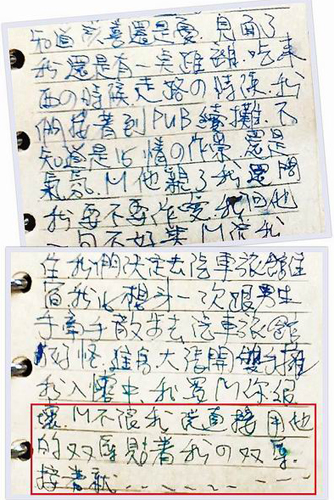 知道該喜還是憂.見面了
我還是有一點難
面の時候.走路の時候.我
們接著到PUB續攤.不
知道是心情の作祟.還是
氣氛.M他親了我還問
我要不要作愛.我回他
不好
住我們決定去汽車旅館住
宿我也想 一次跟男生
手牽手散步去汽車旅館
好怪.難 大 開雙手擁
我入懷中.我罵M你很
M不 我 直接用他
的双唇貼著我の双唇.
接著就